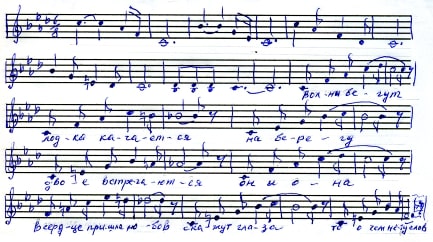 Вол-ны бе-гут
лод-ка ка-ча-ет-ся на бе-ре-гу
дво-е встреча-ют-ся он и о-на
В серд-це пришла лю-бовь ска-жут гла-за то о чем не